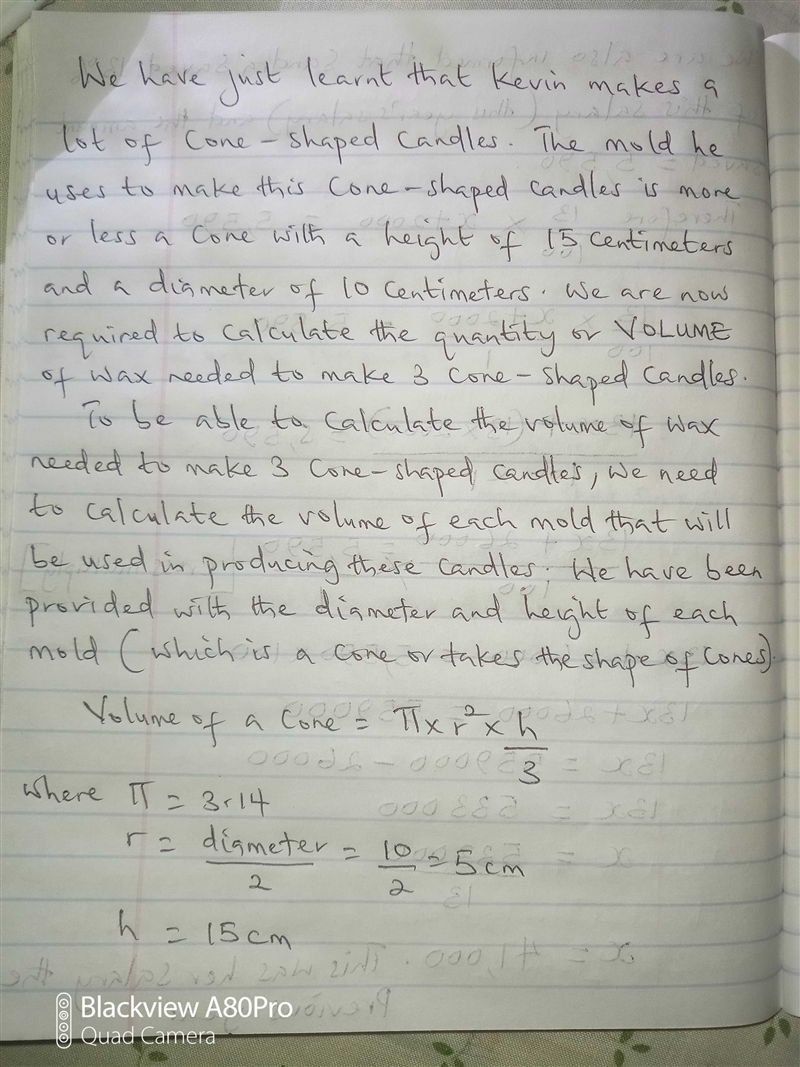 We have just learnt that Kevin makes a
lot of Cone-shaped Candles. The mold he
uses to make this Cone-shaped candles is more
or less a Cone with a height of 15 Centimeters
and a diameter of 10 Centimeters. We are now
required to Calculate the quantity or VOLUME
of wax needed to make 3 Cone-shaped Candles.
To be able to Calculate the volume of wax
needed to make 3 Cone-shaped candles, We need
to Calculate the volume of each mold that will
be used in producing these Candles. We have been
provided with the diameter and height of each
mold (which is a Cone or takes the shape of Cones)
Volume of a Cone = π x r² x h/3
where π = 3.14
r = diameter/2 = 10/2 = 5cm
h = 15cm
Blackview A80Pro
Quad Camera